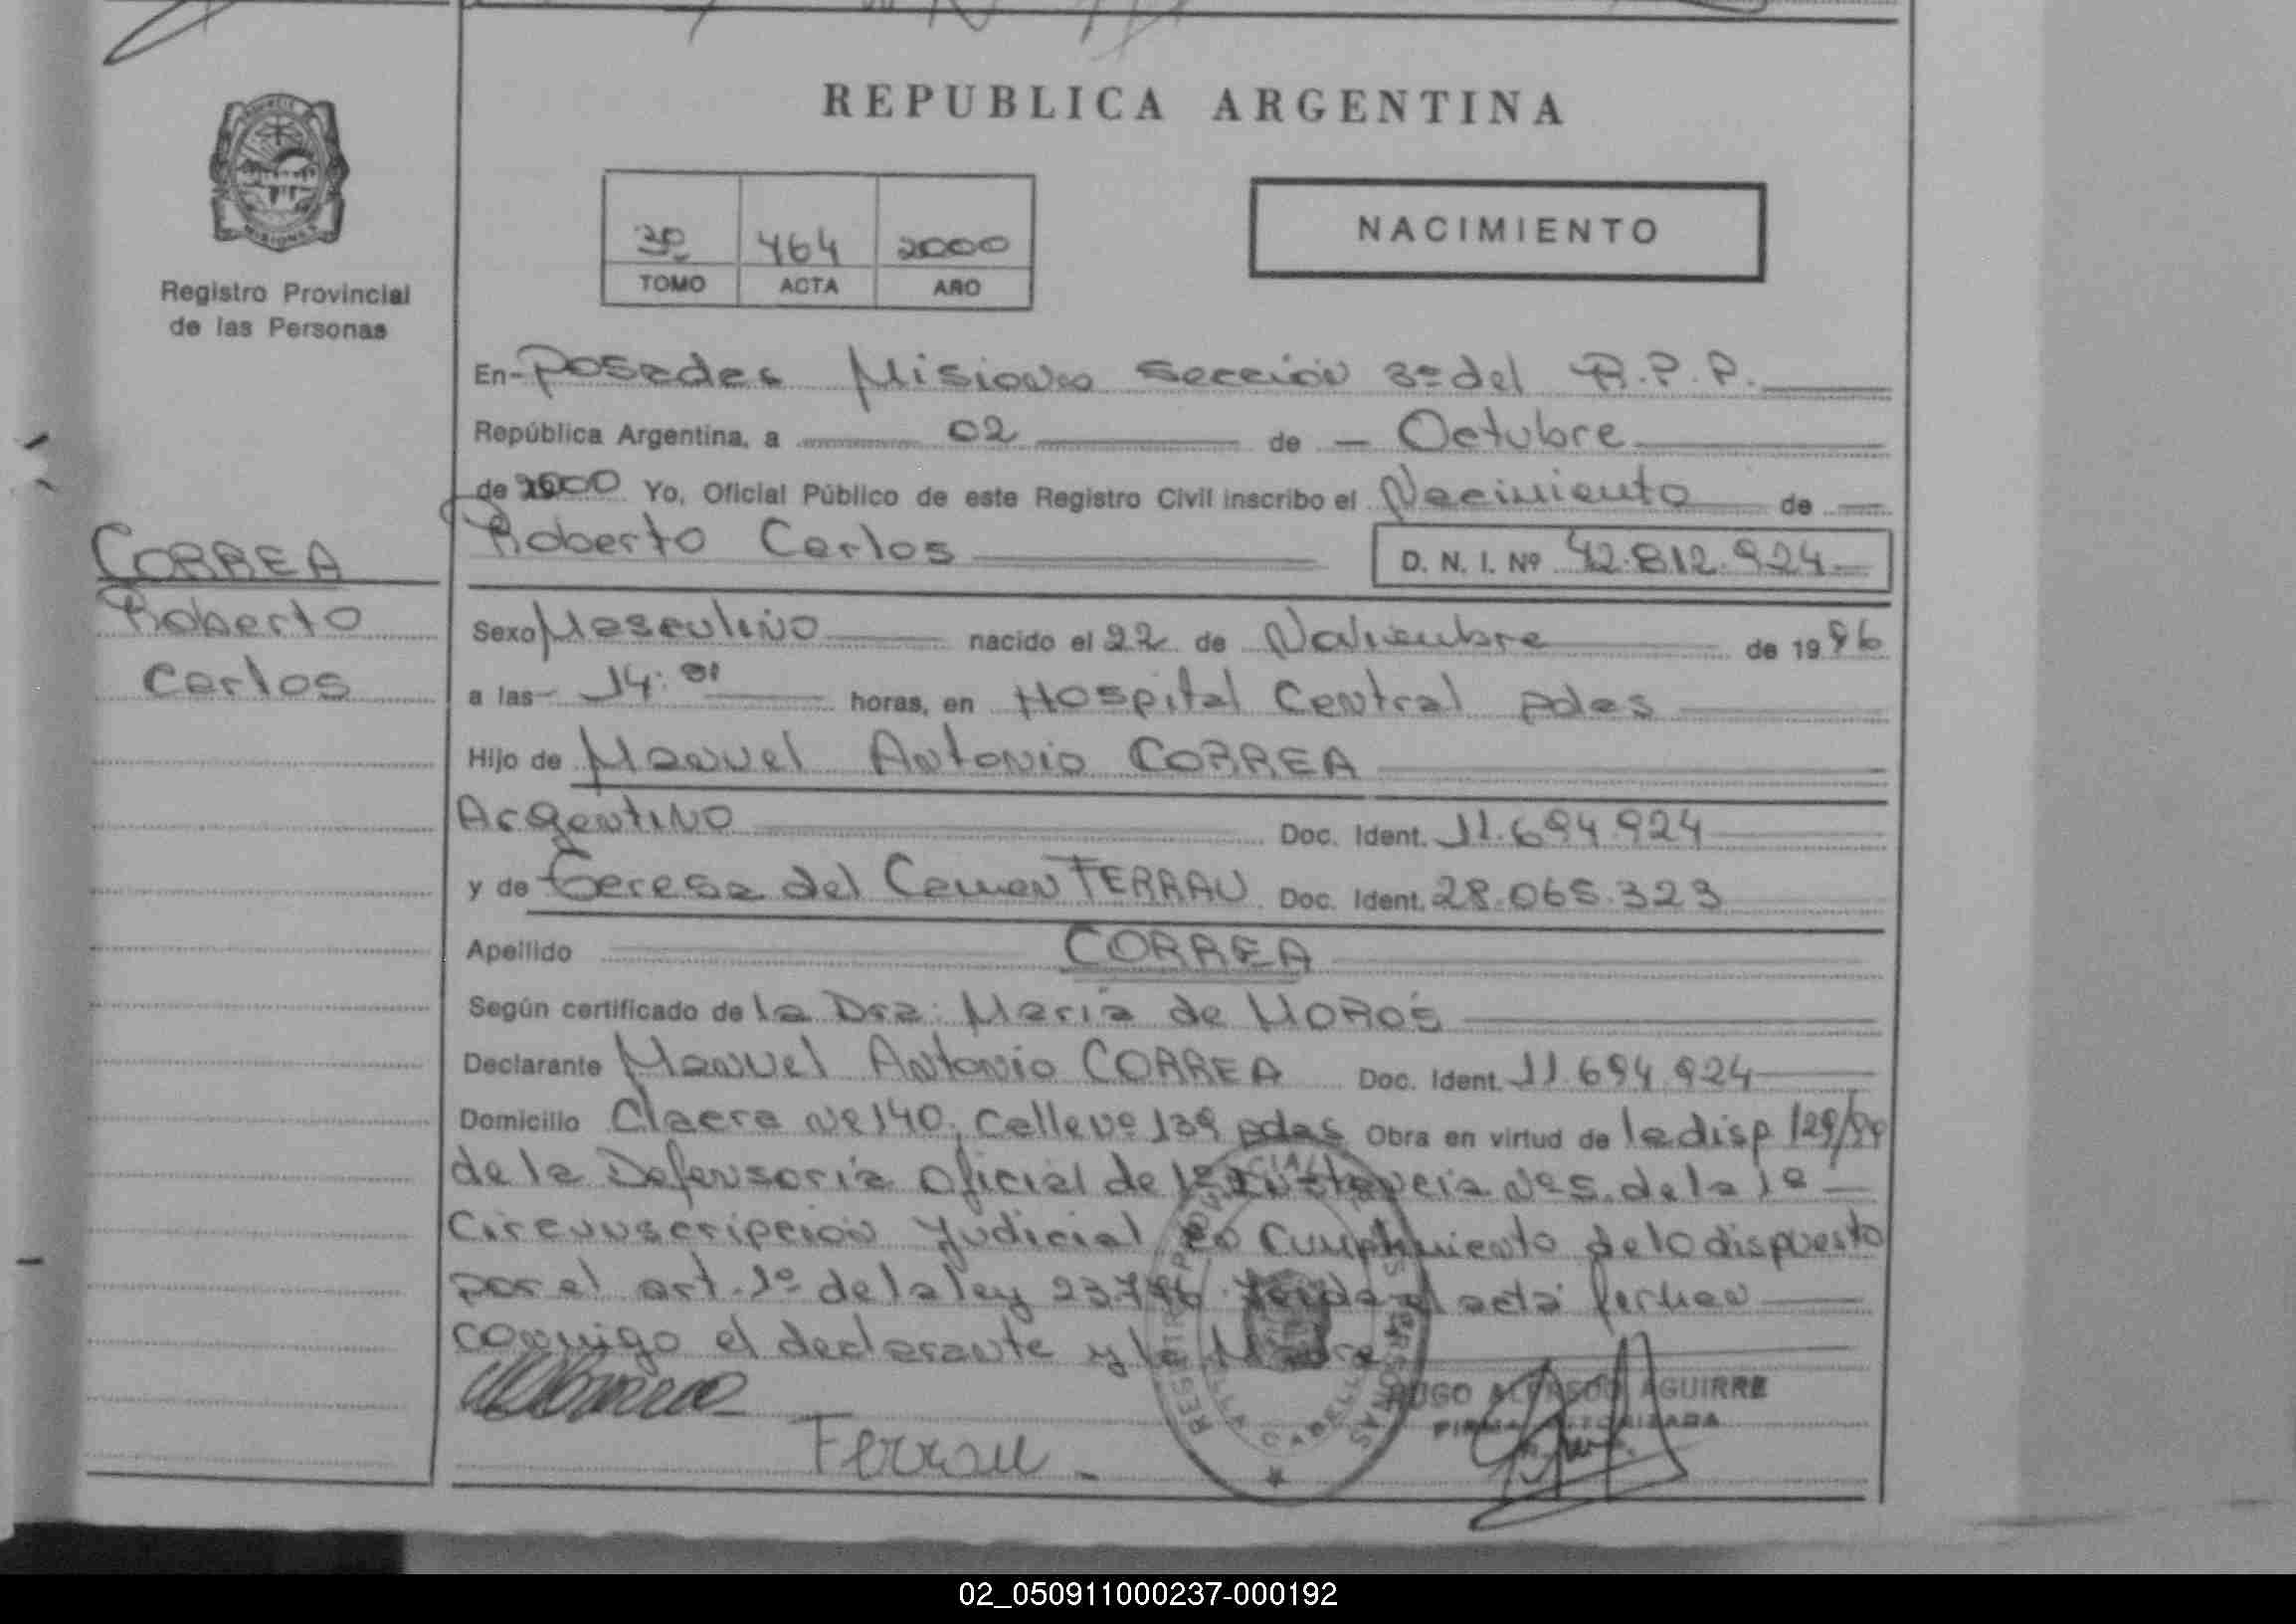 REPUBLICA ARGENTINA
MISIONES
Registro Provincial
de las Personas
464 2000
TOMO ACTA AÑO
NACIMIENTO
En Posadas Misiones Sección 3º del R.P.P.
República Argentina, a 02 de Octubre
de 2000 Yo, Oficial Público de este Registro Civil inscribo el Nacimiento de
Roberto Carlos D. N. I. Nº 42.812.924
CORREA
Roberto
Carlos
Sexo Masculino nacido el 22 de Noviembre de 1996
a las 14: horas, en Hospital Central pdas
Hijo de Manuel Antonio CORREA
Argentino Doc. Ident. 11.694.924
y de Teresa del Carmen FERRAU Doc. Ident. 28.065.323
Apellido CORREA
Según certificado de la Dra. María de
Declarante Manuel Antonio CORREA Doc. Ident. 11.694.924
Domicilio Chacra Nº 140, Calle Nº 139 pdas Obra en virtud de la disp
de la Defensoría Oficial de 1º Instancia Nº 5 de la 1º
Circunscripción Judicial en Cumplimiento de lo dispuesto
por el art. 1º de la ley Leida el acta firman
conmigo el declarante y la Madre
HUGO ALFREDO AGUIRRE
FIRMA AUTORIZADA
Ferrau
02_050911000237-000192